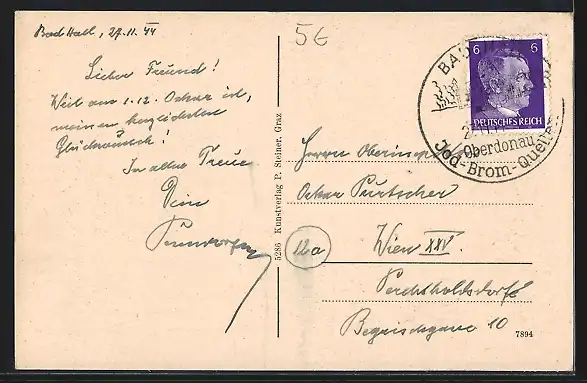 Bad Hall, 27.11.44
Lieber Freund!
Weil am 1.12. Oskar ist,
meinen herzlichsten
Glückwunsch!
In alter Treue
Dein
5286 Kunstverlag P. Steiner, Graz
5€
6 6
DEUTSCHES REICH
BAD
Oberdonau
Jod-Brom-Quellen
Herrn Oberinsp
Oskar Purtscher
12a
Wien XXV.
Perchtholdsdorf
10
7894